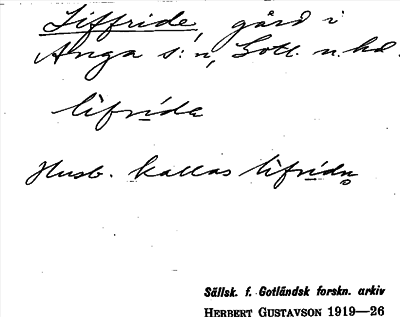 Liffride, gård i
Anga s:n, Gotl. n. hd.
lifrida
Husb. kallas lifridn
Sällsk. f. Gotländsk forskn. arkiv
HERBERT GUSTAVSON 1919—26